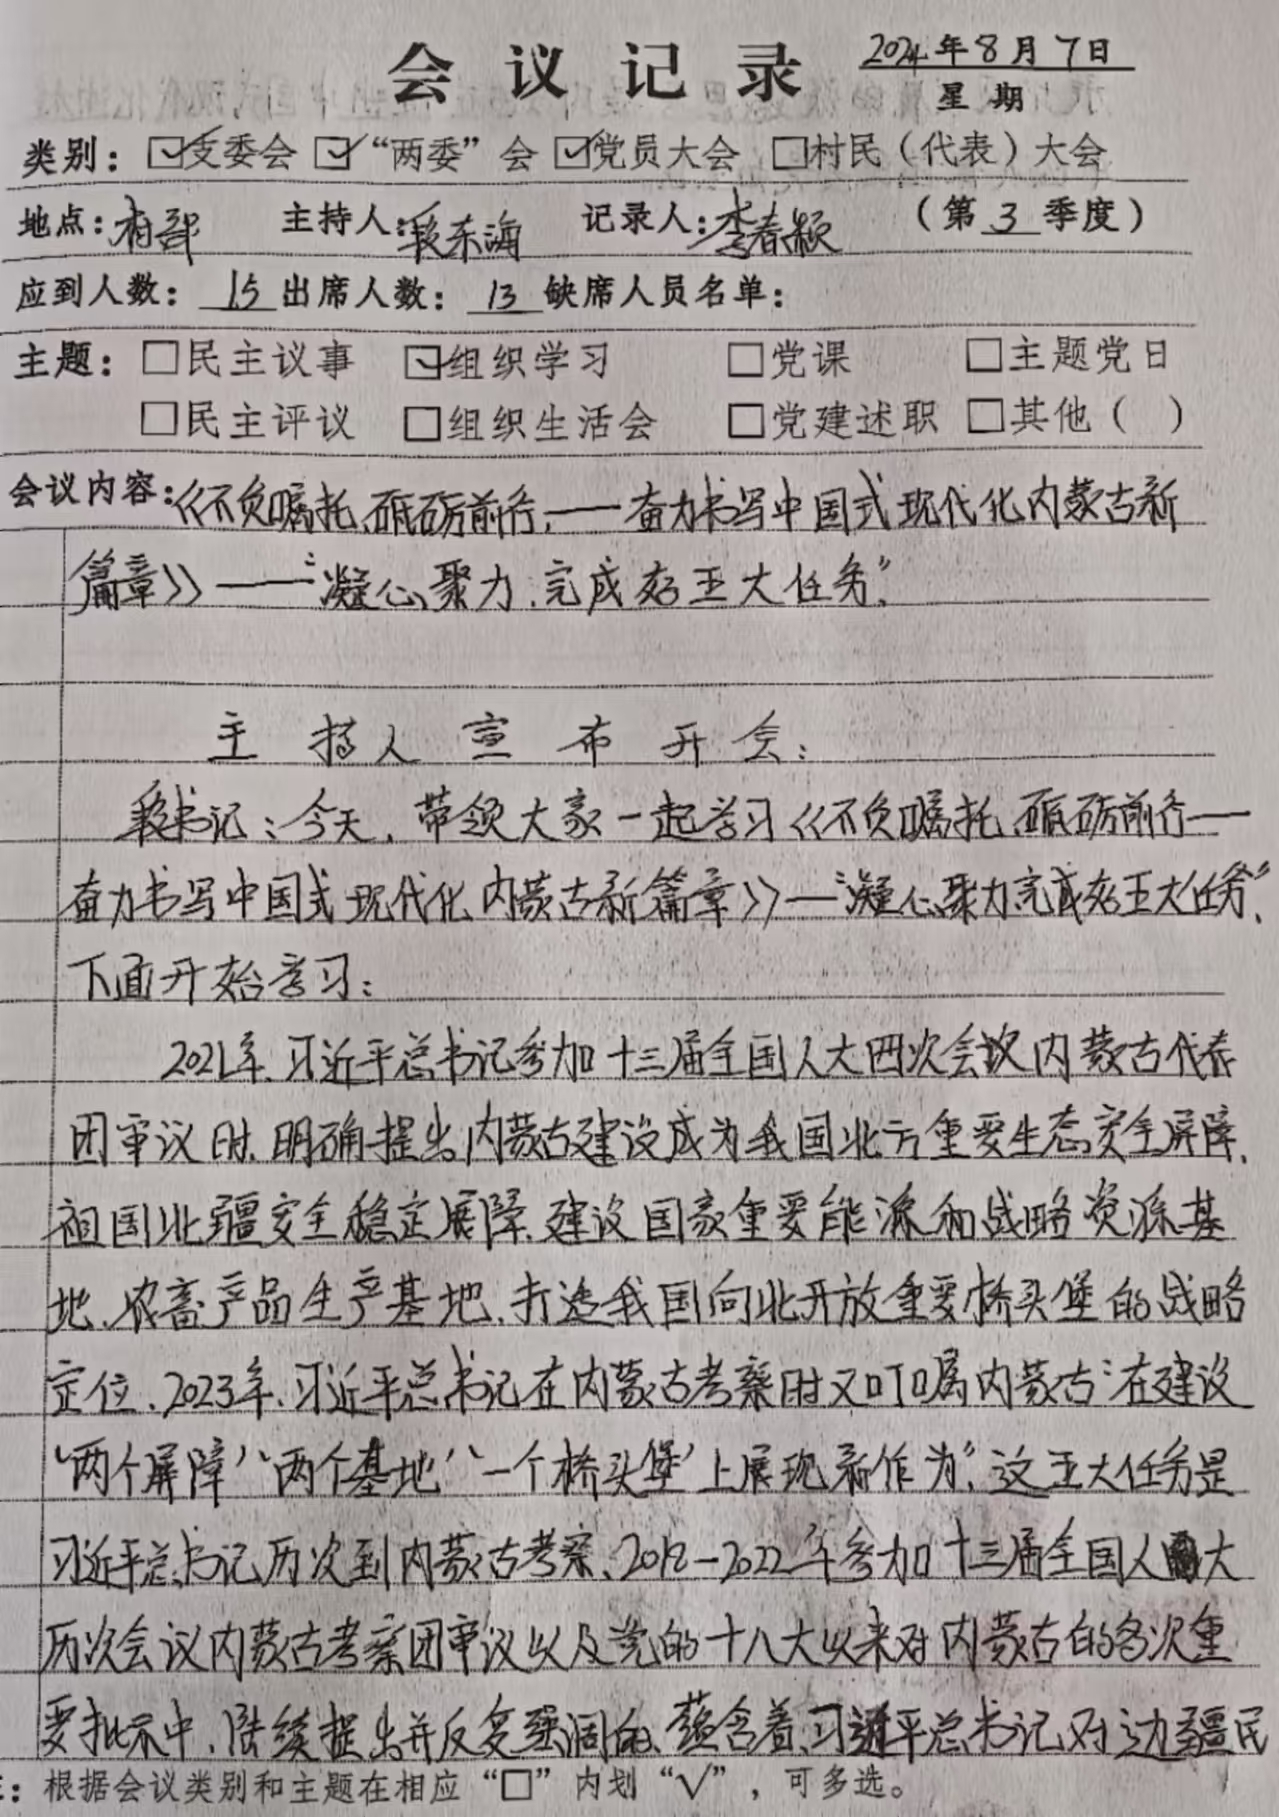 会议记录 2024年8月7日
星期
类别：☑支委会 ☑“两委”会 ☑党员大会 □村民（代表）大会
地点：村部 主持人：段东海 记录人：李春颖 （第3季度）
应到人数：15 出席人数：13 缺席人员名单：
主题：□民主议事 ☑组织学习 □党课 □主题党日
□民主评议 □组织生活会 □党建述职 □其他（ ）
会议内容：《不负嘱托、砥砺前行，——奋力书写中国式现代化内蒙古新
篇章》——“凝心聚力，完成好五大任务”。
主持人宣布开会：
段书记：今天，带领大家一起学习《不负嘱托，砥砺前行——
奋力书写中国式现代化内蒙古新篇章》——“凝心聚力完成好五大任务”，
下面开始学习：
2021年，习近平总书记参加十三届全国人大四次会议内蒙古代表
团审议时，明确提出内蒙古建设成为我国北方重要生态安全屏障，
祖国北疆安全稳定屏障，建设国家重要能源和战略资源基
地、农畜产品生产基地，打造我国向北开放重要桥头堡的战略
定位，2023年，习近平总书记在内蒙古考察时又叮嘱内蒙古“在建设
‘两个屏障’‘两个基地’‘一个桥头堡’上展现新作为”，这五大任务是
习近平总书记历次到内蒙古考察、2018-2022年参加十三届全国人大
历次会议内蒙古考察团审议以及党的十八大以来对内蒙古的各次重
要批示中，陆续提出并反复强调的，蕴含着习近平总书记对边疆民
：根据会议类别和主题在相应“□”内划“√”，可多选。